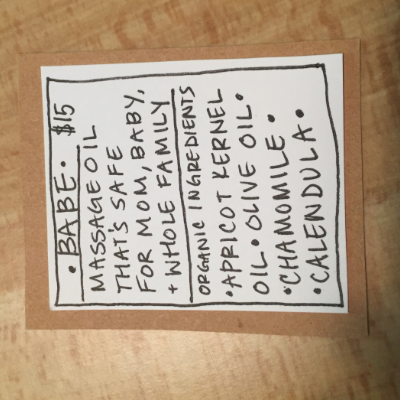 • BABE • $15
MASSAGE OIL
THAT'S SAFE
FOR MOM, BABY,
+ WHOLE FAMILY
ORGANIC INGREDIENTS
•APRICOT KERNEL
OIL•OLIVE OIL•
•CHAMOMILE•
•CALENDULA•